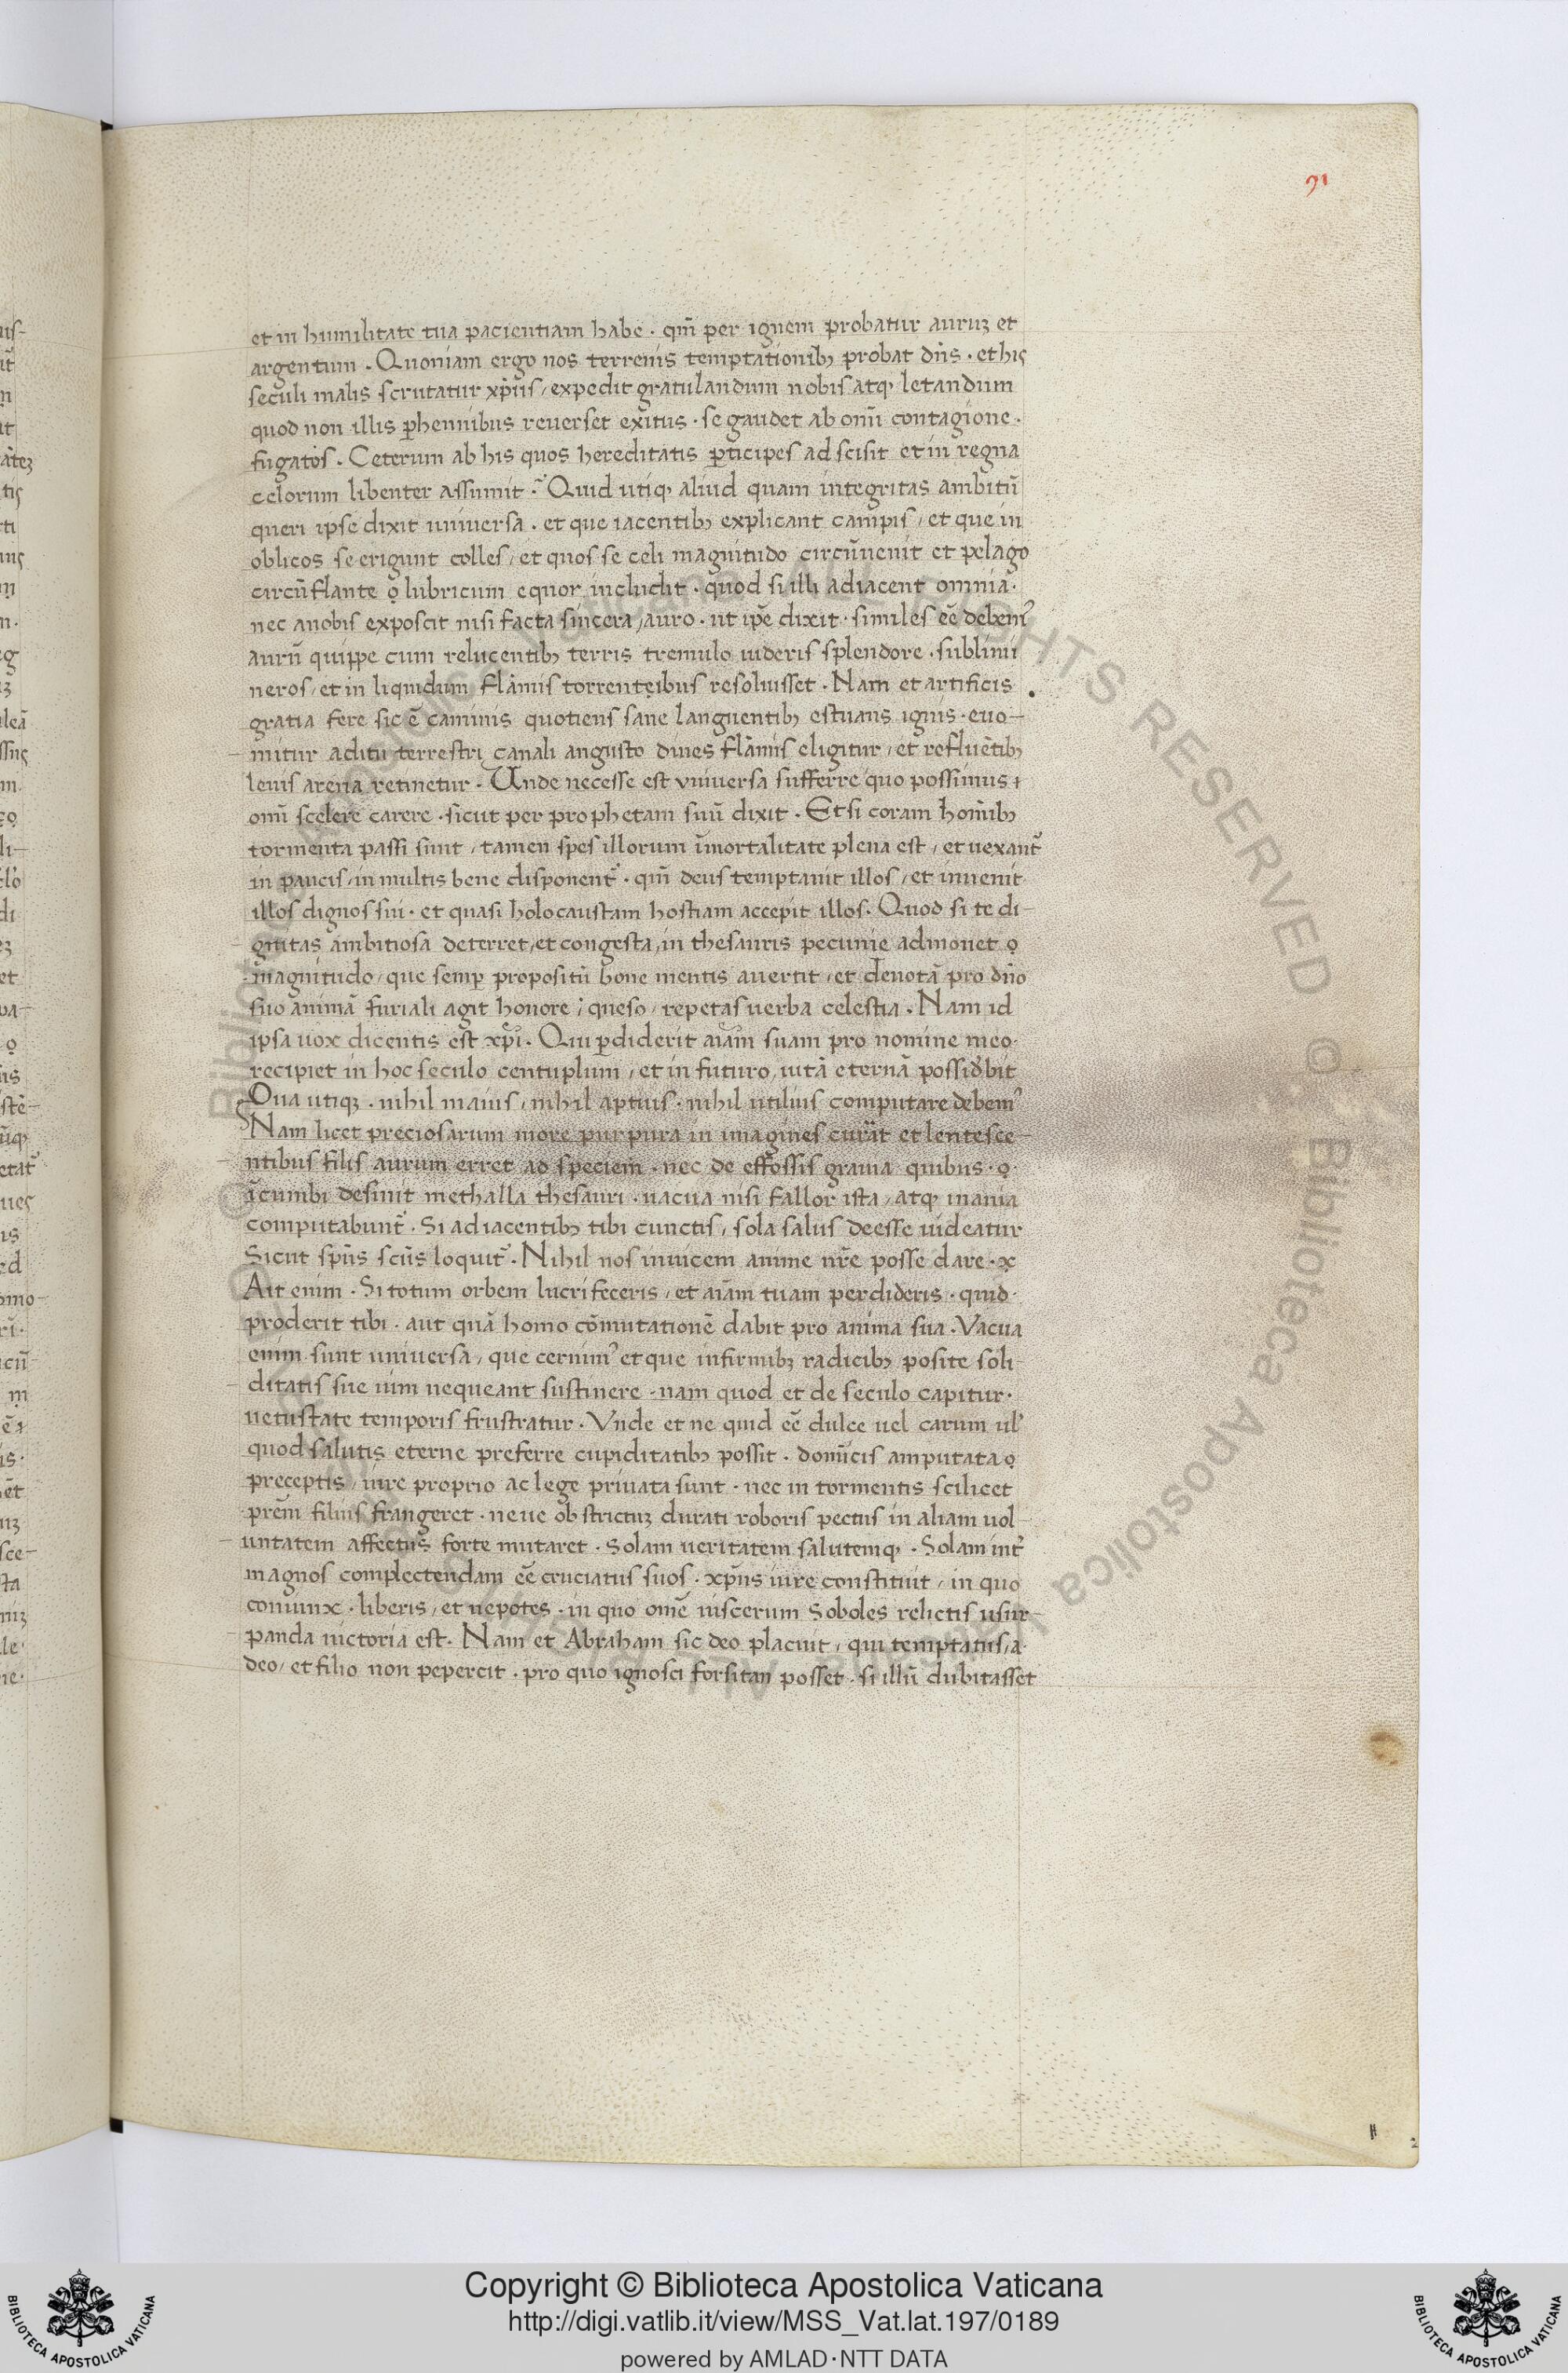 91
et in humilitate tua pacientiam habe . qm̄ per ignem probatur auruꝫ et
argentum . Quoniam ergo nos terrenis temptationibꝫ probat dn̄s . et his
seculi malis scrutatur xp̄us / expedit gratulandum nobis atqꝫ letandum
quod non illis ꝑhennibus reuerset exitus . se gaudet ab omī contagione .
fugatos . Ceterum ab his quos hereditatis ꝑticipes adscisit et in regna
celorum libenter assumit . Quid utiqꝫ aliud quam integritas ambitū
queri ipse dixit uniuersa . et que iacentibꝫ explicant campis / et que in
oblicos se erigunt colles / et quos se celi magnitudo circūuenit et pelago
circūflante ꝙ lubricum equor includit . quod si illi adiacent omnia .
nec a nobis exposcit nisi facta sincera / auro . ut ip̄e dixit . similes eē debemꝰ
aurū quippe cum relucentibꝫ terris tremulo uideris splendore . sublimi
neros / et in liquidum flāmis torrenteibus resoluisset . Nam et artificis
gratia fere sic ē caminis quotiens sane languentibꝫ estuans ignis . euo-
mitur aditu terrestri canali angusto diues flāmis eligitur / et refluētibꝫ
leuis arena retinetur . Unde necesse est vniuersa sufferre quo possimus
omī scelere carere . sicut per prophetam suū dixit . Et si coram homībꝫ
tormenta passi sunt / tamen spes illorum īmortalitate plena est / et uexant᷑
in paucis / in multis bene disponent᷑ . qm̄ deus temptauit illos / et inuenit
illos dignos sui . et quasi holocaustam hostiam accepit illos . Quod si te di-
gnitas ambitiosa deterret / et congesta / in thesauris pecunie admonet ꝙ
magnitudo / que semꝑ propositū bone mentis auertit / et deuotā pro dn̄o
suo animā furiali agit honore ; queso / repetas uerba celestia . Nam id
ipsa uox dicentis est xp̄i . Qui ꝑdiderit aīam suam pro nomine meo .
recipiet in hoc seculo centuplum / et in futuro / uitā eternā possidˀbit
Qua utiqꝫ . nihil maius / nihil aptius . nihil utilius computare debemꝰ
Nam licet preciosarum more purpura in imagines curāt et lentesce-
ntibus filis aurum erret ad speciem . nec de effossis grauia quibus . ꝙ
īcumbi desinit methalla thesauri . uacua nisi fallor ista / atqꝫ inania
computabunt᷑ . Si adiacentibꝫ tibi cunctis / sola salus deesse uideatur
Sicut sp̄us scūs loquit᷑ . Nihil nos inuicem anime nr̄e posse dare . x
Ait enim . Si totum orbem lucri feceris / et aīam tuam perdideris . quid .
proderit tibi . aut quā homo cōmutationē dabit pro anima sua . Vacua
enim sunt uniuersa / que cernimꝰ et que infirmibꝫ radicibꝫ posite soli-
ditatis sue uim nequeant sustinere . nam quod et de seculo capitur .
uetustate temporis frustratur . Vnde et ne quid eē dulce uel carum ul̓
quod salutis eterne preferre cupiditatibꝫ possit . domīcis amputata ꝙ
preceptis / iure proprio ac lege priuata sunt . nec in tormentis scilicet
prēm filius frangeret . neue obstrictuꝫ durati roboris pectus in aliam uol-
untatem affectus forte mutaret . Solam ueritatem salutemqꝫ . Solam int᷑
magnos complectendam eē cruciatus suos . xp̄us iure constituit / in quo
coniunx . liberis / et nepotes . in quo omē uiscerum soboles relictis usur-
panda uictoria est . Nam et Abraham sic deo placuit / qui temptatus / a
deo / et filio non pepercit . pro quo ignosci forsitan posset . si illū dubitasset
© Biblioteca Apostolica Vaticana ALL RIGHTS RESERVED © Biblioteca Apostolica Vaticana ALL RIGHTS RESERVED
Copyright © Biblioteca Apostolica Vaticana
http://digi.vatlib.it/view/MSS_Vat.lat.197/0189
powered by AMLAD·NTT DATA
BIBLIOTECA APOSTOLICA VATICANA
BIBLIOTECA APOSTOLICA VATICANA